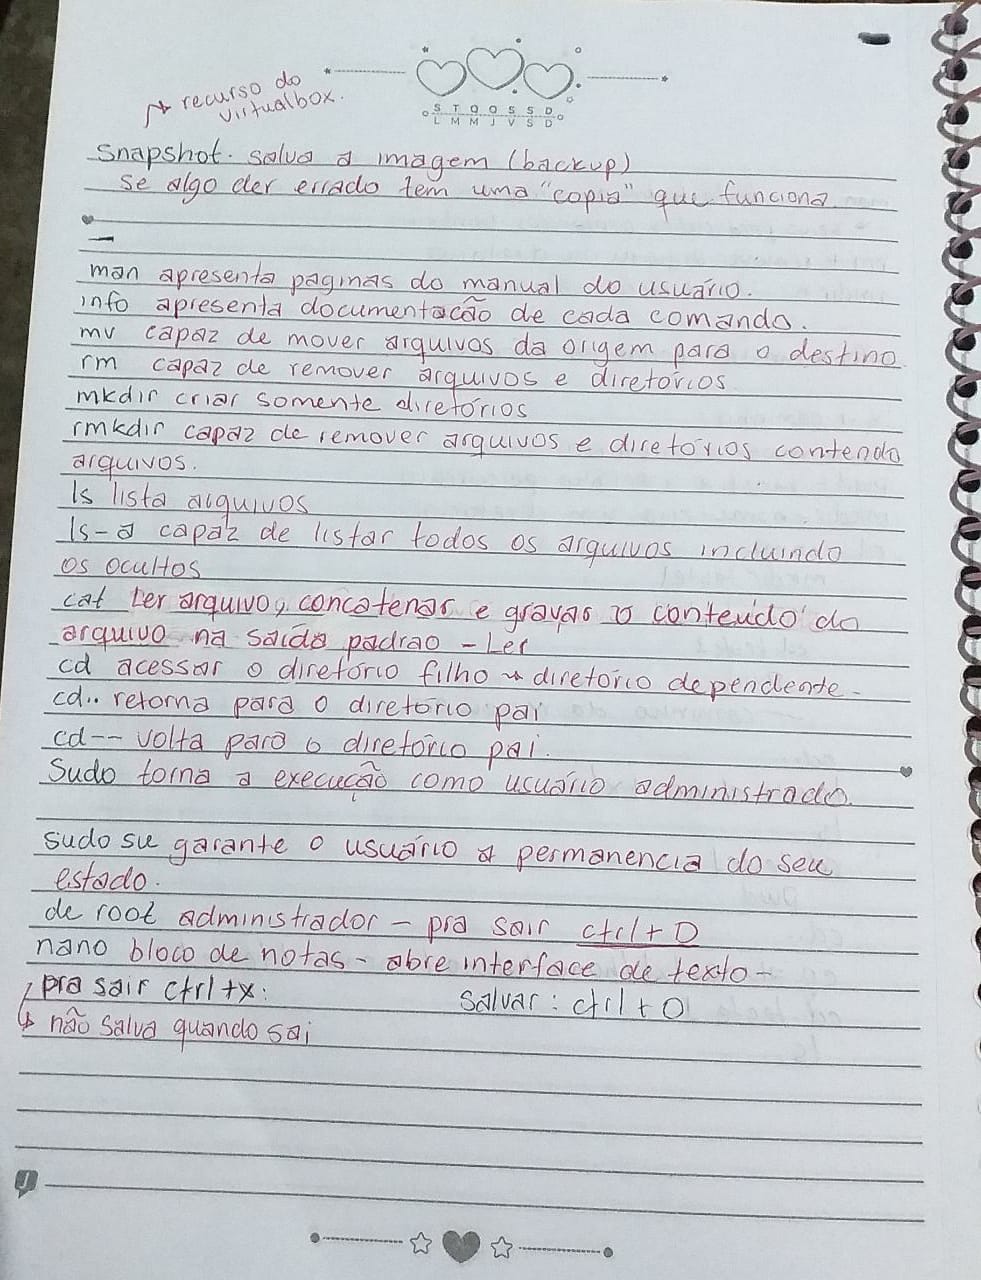 recurso do
virtualbox.
S T Q Q S S D
L M M J V S D
Snapshot. salva a imagem (backup)
se algo der errado tem uma "copia" que funciona
man apresenta paginas do manual do usuário.
info apresenta documentação de cada comando.
mv capaz de mover arquivos da origem para o destino
rm capaz de remover arquivos e diretórios
mkdir criar somente diretórios
rmkdir capaz de remover arquivos e diretórios contendo
arquivos.
ls lista arquivos
ls-a capaz de listar todos os arquivos incluindo
os ocultos
cat Ler arquivo, concatenar e gravar o conteúdo do
arquivo na saída padrao - Ler
cd acessar o diretório filho → diretório dependente-
cd.. retorna para o diretório pai
cd-- volta para o diretório pai.
Sudo torna a execução como usuário administrado.
sudo su garante o usuário a permanencia do seu
estado.
de root administrador - pra sair ctrl+D
nano bloco de notas - abre interface de texto-
pra sair ctrl+x: salvar: ctrl+O
↳ não salva quando sai